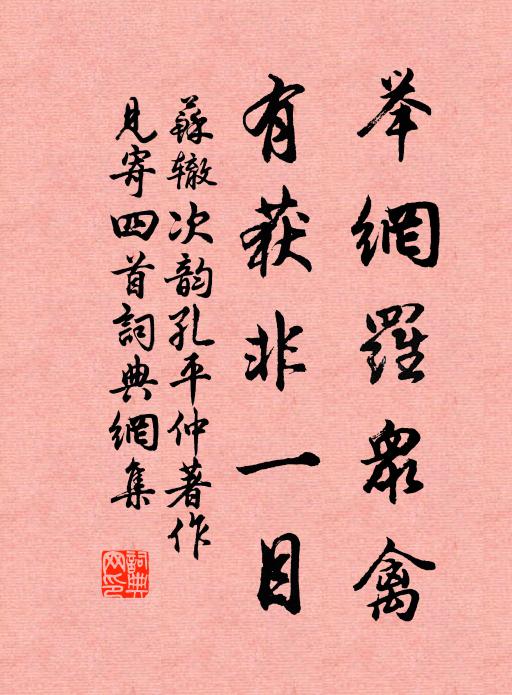 举網羅衆禽
有获非一目
蘇辙次韵孔平仲著作
見寄四首詞典網集
詞典網印